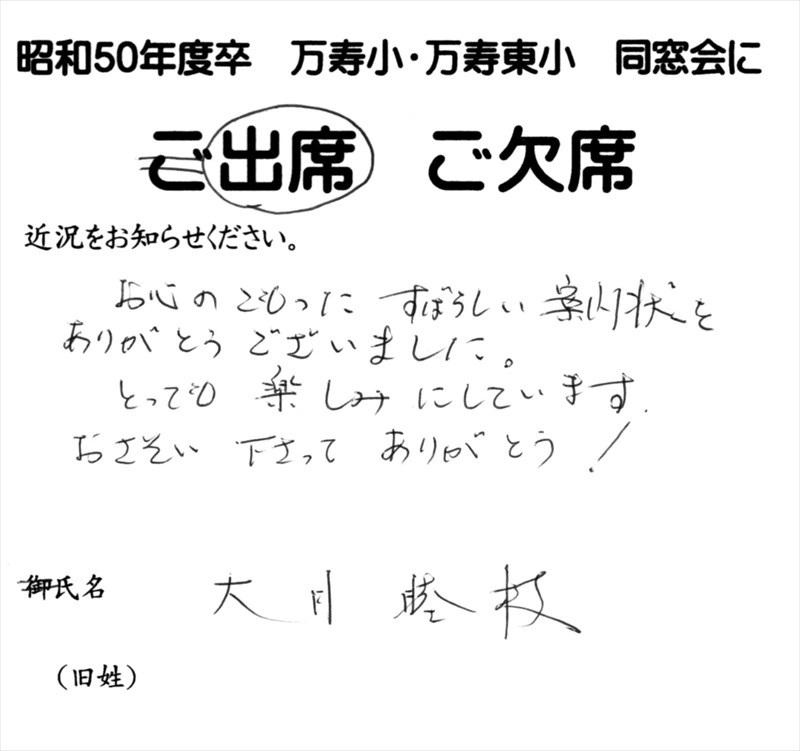 昭和50年度卒　万寿小・万寿東小　同窓会に
ご出席　ご欠席
近況をお知らせください。
お心のこもった すばらしい 案内状を
ありがとう ございました。
とっても 楽しみ にしています.
おさそい 下さって ありがとう!
御氏名 大月 睦枝
（旧姓）